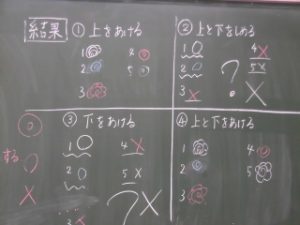 結果
① 上をあける
1 4
2 5
3
② 上と下をしめる
1 ○ 4 ×
2 ○ 5 ×
3 × ? ×
③ 下をあける
1 ○ 4 ×
2 ○ 5 ×
3 × ? ×
④ 上と下をあける
1 4
2 5
3
する
?
×